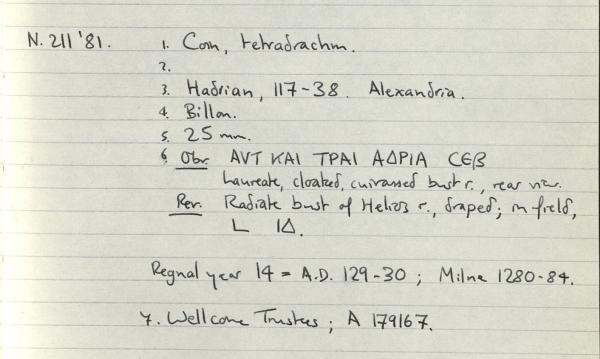 N. 211 '81. 1. Coin, tetradrachm.
2.
3. Hadrian, 117-38. Alexandria.
4. Billon.
5. 25 mm.
6. Obv. ΑVΤ ΚΑΙ ΤΡΑΙ ΑΔΡΙΑ CЄΒ
Laureate, cloaked, cuirassed bust r., rear view.
Rev. Radiate bust of Helios r., draped; in field,
L ΙΔ.
Regnal year 14 = A.D. 129-30; Milne 1280-84.
7. Wellcome Trustees; A 179167.